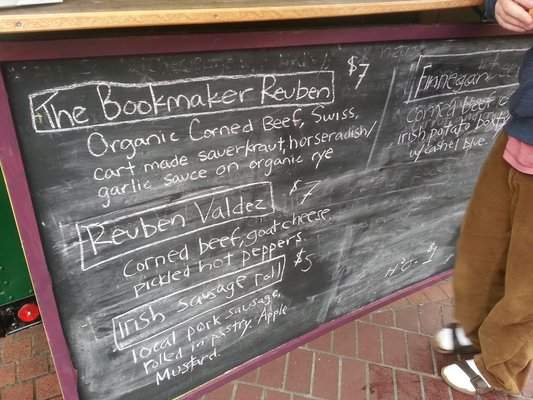 The Bookmaker Reuben $7
Organic Corned Beef, Swiss,
cart made sauerkraut, horseradish/
garlic sauce on organic rye
Reuben Valdez $7
Corned beef, goat cheese
pickled hot peppers.
Irish sausage roll $5
local pork sausage,
rolled in pastry. Apple
Mustard.
Finnegan
Corned beef
Irish potato boxty
w/cashel blue
H²O - $1